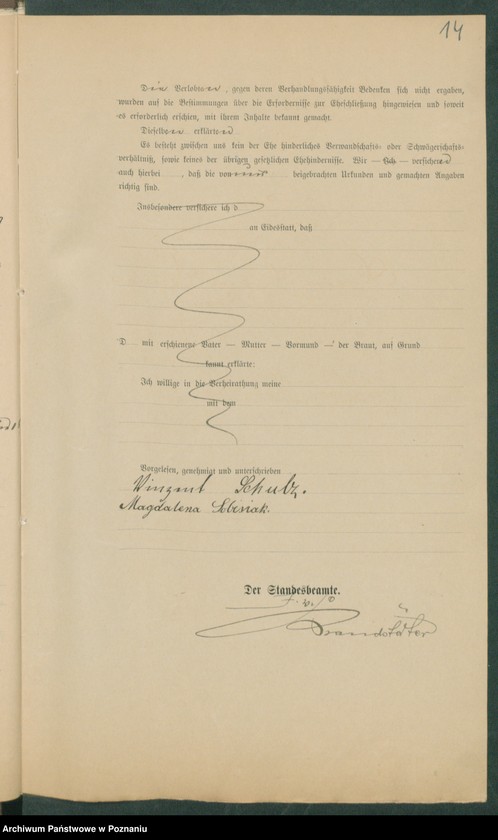 14
Die Verlobten, gegen deren Verhandlungsfähigkeit Bedenken sich nicht ergaben,
wurden auf die Bestimmungen über die Erfordernisse zur Eheschließung hingewiesen und soweit
es erforderlich erschien, mit ihrem Inhalte bekannt gemacht.
Dieselben erklärten
Es besteht zwischen uns kein der Ehe hinderliches Verwandschafts- oder Schwägerschafts-
verhältniß, sowie keines der übrigen gesetzlichen Ehehindernisse. Wir — Ich — versichern
auch hierbei , daß die von uns beigebrachten Urkunden und gemachten Angaben
richtig sind.
Insbesondere versichere ich d
an Eidesstatt, daß
D mit erschienene Vater — Mutter — Vormund — der Braut, auf Grund
kannt erklärte:
Ich willige in die Verheirathung meine
mit dem
Vorgelesen, genehmigt und unterschrieben
Vinzent Schulz.
Magdalena
Der Standesbeamte.
Brandstädter
Archiwum Państwowe w Poznaniu